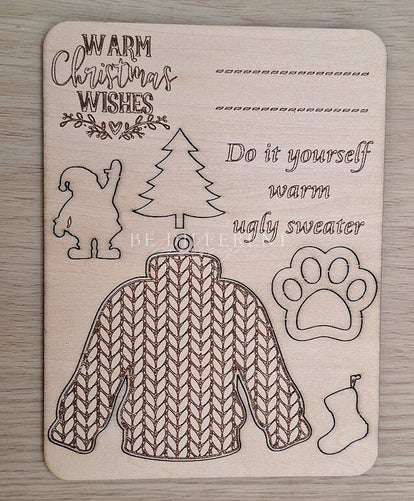 WARM
Christmas
WISHES
Do it yourself
warm
ugly sweater